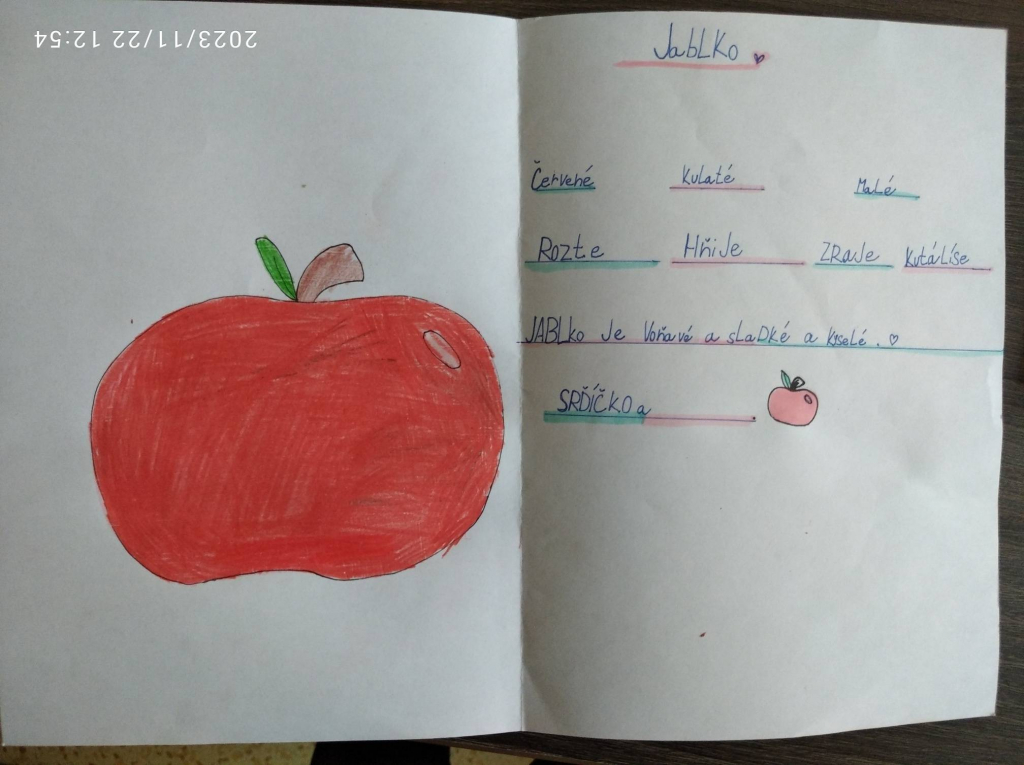 2023/11/22 12:54
JabLKo
Červené Kulaté Malé
Rozte Hňije ZRaJe KutáLíše
JABLko Je Voňavé a sLaDké a KyseLé.
SRĎÍČKO a